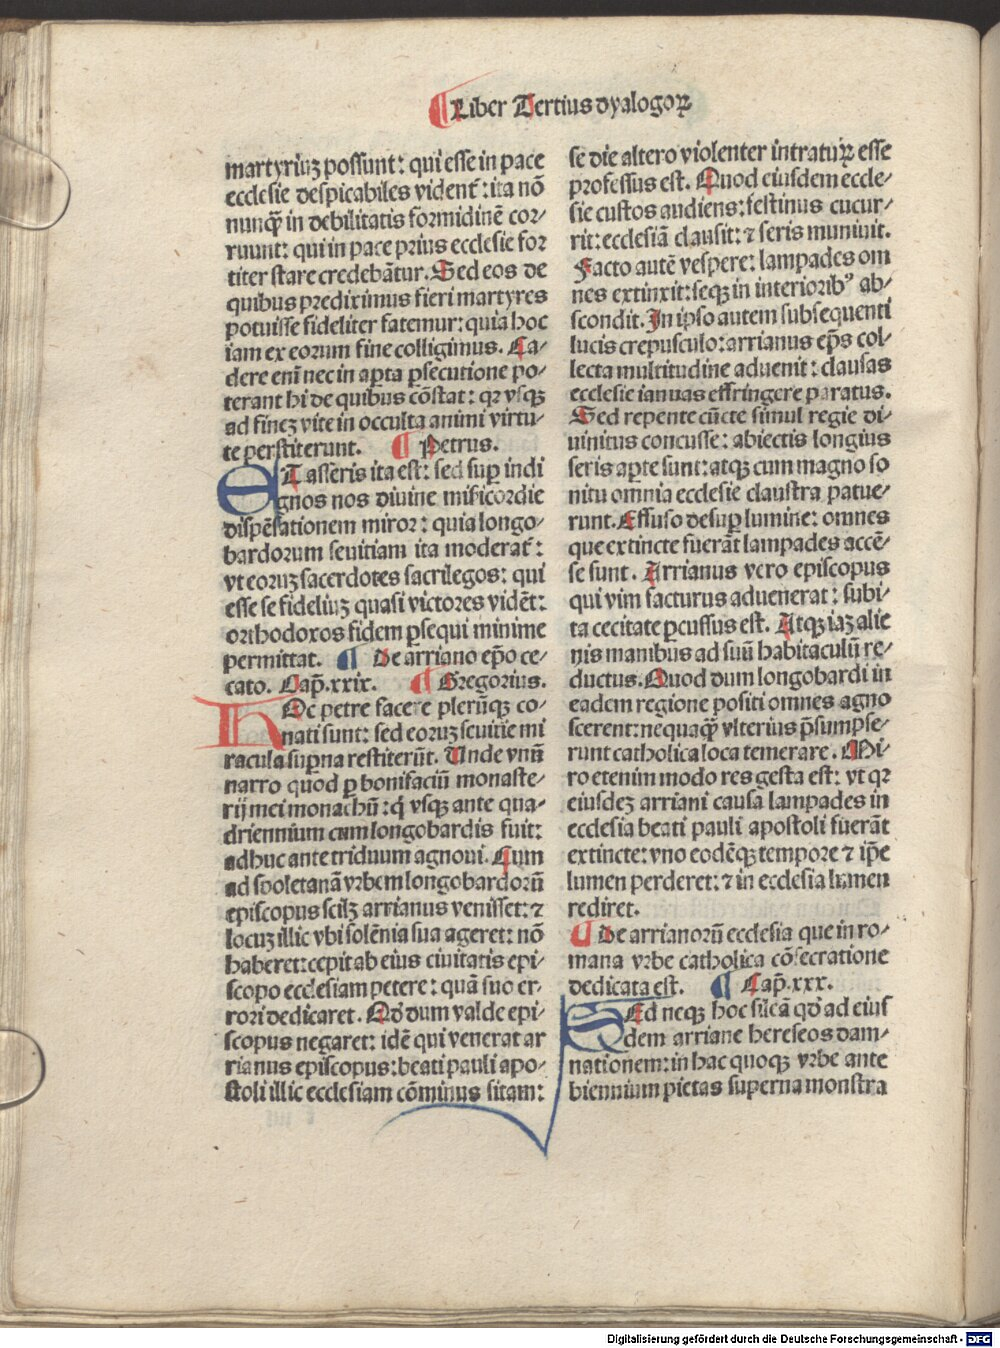 ¶Liber Tertius dyalogoꝝ
martyriuꝫ possunt: qui esse in pace
ecclesie despicabiles vident᷑: ita nō
nunqꝫ in debilitatis formidinē cor⸗
ruunt: qui in pace prius ecclesie for
titer stare credebātur. Sed eos de
quibus prediximus fieri martyres
potuisse fideliter fatemur: quia hoc
iam ex eorum fine colligimus. Ca⸗
dere eni nec in aꝑta ꝑsecutione po⸗
terant hi de quibus cōstat: qꝛ vsqꝫ
ad fineꝫ vite in occulta animi virtu⸗
te perstiterunt. ¶ Petrus.
ETasseris ita est: sed suꝑ indi
gnos nos diuine miẜicordie
dispēsationem miror: quia longo⸗
bardorum seuitiam ita moderat᷑:
vt eoruꝫ sacerdotes sacrilegos: qui
esse se fideliuꝫ quasi victores vidēt:
orthodoxos fidem ꝑsequi minime
permittat. ¶ De arriano ep̄o ce⸗
cato. Cap̄.xxix. ¶ Gregorius.
HOc petre facere plerūqꝫ co⸗
nati sunt: sed eoruꝫ seuitie mi
racula suꝑna restiterūt. Unde vnū
narro quod ꝑ bonifaciū monaste⸗
rij mei monachū: q̄ vsqꝫ ante qua⸗
driennium cum longobardis fuit:
adhuc ante triduum agnoui. Cum
ad spoletanā vrbem longobardorū
episcopus scilꝫ arrianus venisset: ⁊
locuꝫ illic vbi solēnia sua ageret: nō
haberet: cepit ab eius ciuitatis epi⸗
scopo ecclesiam petere: quā suo er⸗
rori dedicaret. Qd̓ dum valde epi⸗
scopus negaret: idē qui venerat ar
rianus episcopus: beati pauli apo⸗
stoli illic ecclesiam cōminus sitam:
se die altero violenter intratuꝝ esse
professus est. Quod eiusdem eccle⸗
sie custos audiens: festinus cucur⸗
rit: ecclesiā clausit: ⁊ seris muniuit.
Facto autē vespere: lampades om
nes extinxit: seqꝫ in interioribꝰ ab⸗
scondit. In ipso autem subsequenti
lucis crepusculo: arrianus ep̄s col⸗
lecta multitudine aduenit: clausas
ecclesie ianuas effringere paratus.
Sed repente cūcte simul regie di⸗
uinitus concusse: abiectis longius
seris aꝑte sunt: atqꝫ cum magno so
nitu omnia ecclesie claustra patue⸗
runt. Effuso desuꝑ lumine: omnes
que extincte fuerāt lampades accē⸗
se sunt. Arrianus vero episcopus
qui vim facturus aduenerat: subi⸗
ta cecitate ꝑcussus est. Atqꝫ iaꝫ alie
nis manibus ad suū habitaculū re⸗
ductus. Quod dum longobardi in
eadem regione positi omnes agno
scerent: nequaqꝫ vlterius p̄sumpse⸗
runt catholica loca temerare. Mi⸗
ro etenim modo res gesta est: vt qꝛ
eiusdeꝫ arriani causa lampades in
ecclesia beati pauli apostoli fuerāt
extincte: vno eodēqꝫ tempore ⁊ ip̄e
lumen perderet: ⁊ in ecclesia lumen
rediret.
¶ De arrianorū ecclesia que in ro⸗
mana vrbe catholica cōsecratione
dedicata est. ¶ Cap̄.xxx.
SEd neqꝫ hoc sileā qd̓ ad eius
dem arriane hereseos dam⸗
nationem: in hac quoqꝫ vrbe ante
biennium pietas superna monstra
Digitalisierung gefördert durch die Deutsche Forschungsgemeinschaft - DFG